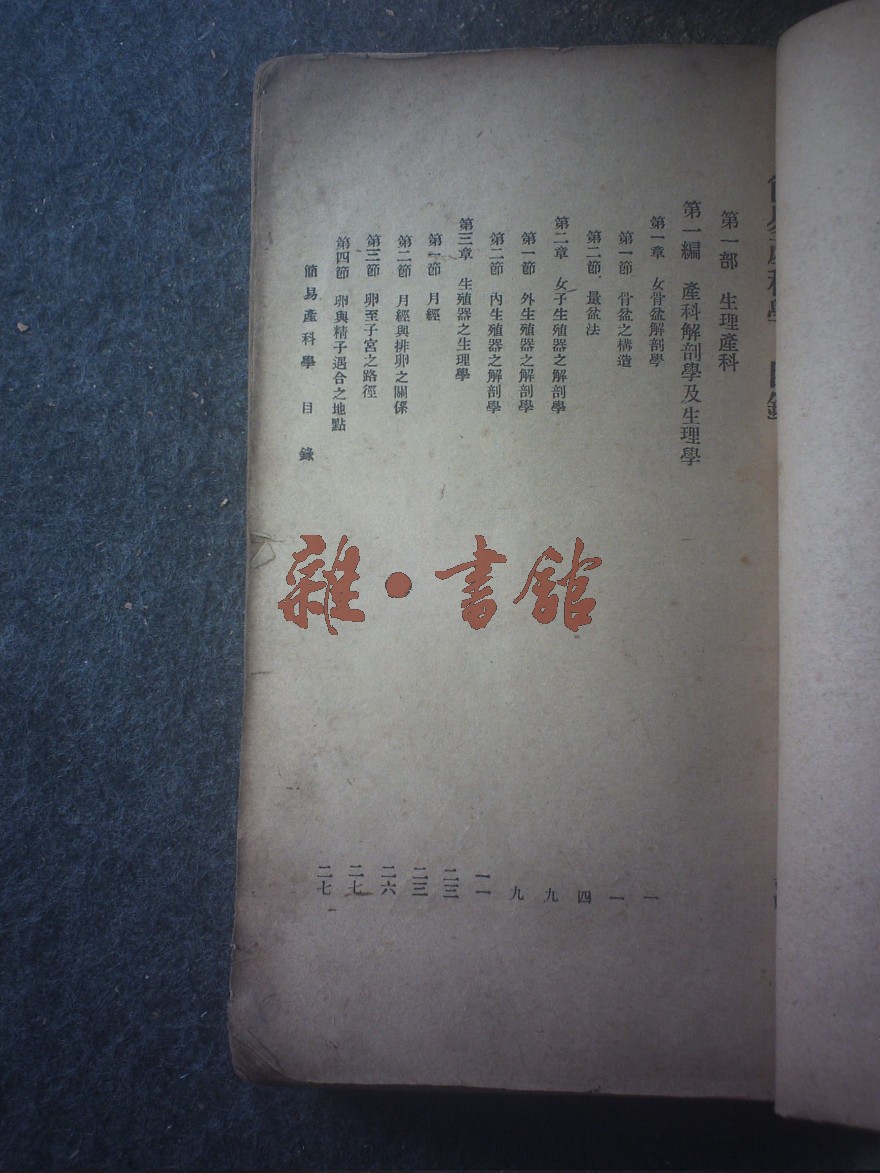 簡易產科學 目錄
第一部 生理產科
第一編 產科解剖學及生理學
第一章 女骨盆解剖學 一
第一節 骨盆之構造 一
第二節 量盆法 四
第二章 女子生殖器之解剖學 九
第一節 外生殖器之解剖學 九
第二節 內生殖器之解剖學 一一
第三章 生殖器之生理學 二三
第一節 月經 二三
第二節 月經與排卵之關係 二六
第三節 卵至子宮之路徑 二七
第四節 卵與精子遇合之地點 二七
簡易產科學 目錄 一
雜·書館